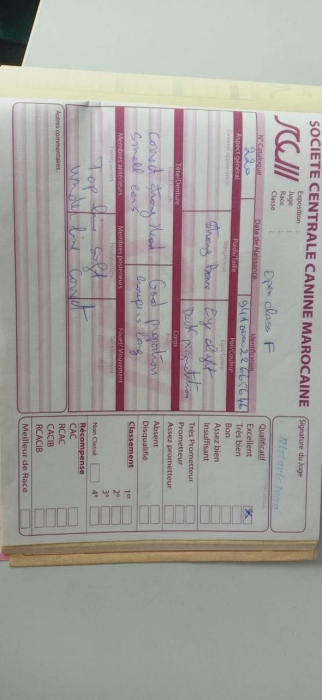 SOCIETE CENTRALE CANINE MAROCAINE
SCCM
Exposition :
Juge :
Race :
Classe :
Open class F
Signature du Juge
N° Catalogue
Date de Naissance
Identification
220
Aspect général
Poids/Taille
Poil/Couleur
Strong bone
Eye
Tête/Denture
Corps
Correct strong head
small ears
Good proportions
croup is long
Membres antérieurs
Membres postérieurs
Fouet/ Mouvement
Top line soft
under line correct
Autres commentaires
Qualificatif
Excellent
Très bien
Bon
Assez bien
Insuffisant
Très Prometteur
Prometteur
Assez prometteur
Absent
Disqualifié
Classement
1er
2e
3e
4e
Non Classé
Récompense
CAC
RCAC
CACIB
RCACIB
Meilleur de Race